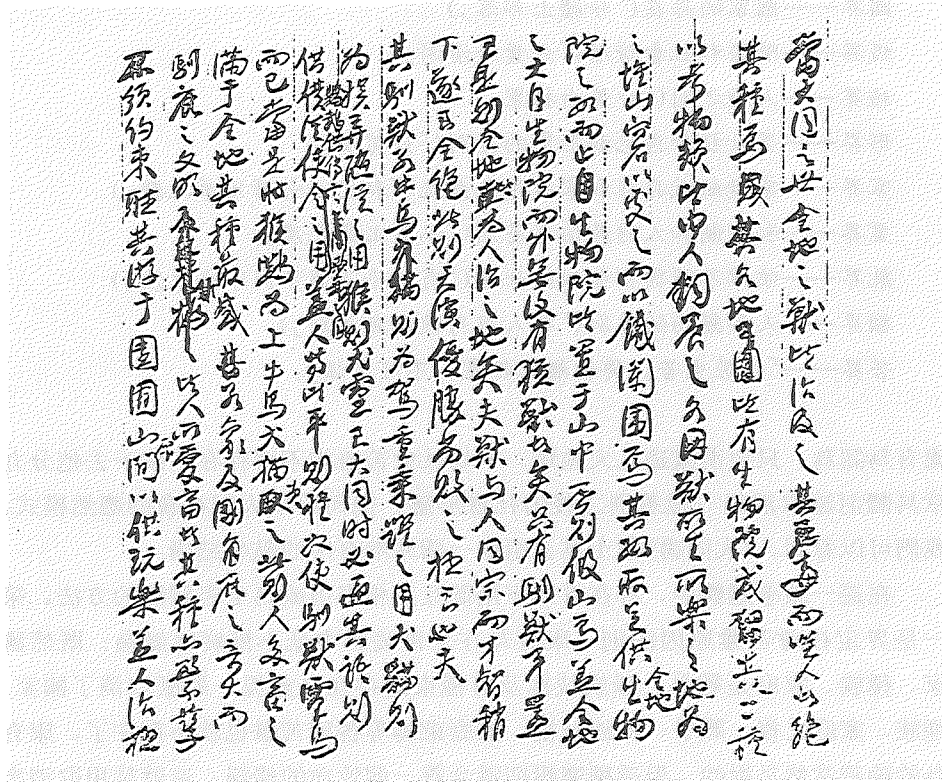 當大同之世全地之獸皆治及之其惡毒而噬人者絕
其種焉各地皆有生物院或留其一二種
以考物類皆由人飼養之各因獸所生所樂之地為
之堆山穴石以處之而以鐵闌圍焉其數取足供全地生物
院之數而止自生物院皆置于山中否則假山焉蓋全地
之大自生物院而外無復有猛獸者矣只有馴獸耳蓋
至是則全地皆為人治之地矣夫獸與人同宗而才智稍
下遂至全絕此則天演優勝劣敗之極至也夫
其馴獸若牛馬則為駕重乘蹈之用犬貓則
為娛弄隨從之用猴則尤靈至大同時必通其語則
供僮從使令之用蓋人皆此平則不能次使馴獸靈鳥
而已當是時猴鸚為上牛馬犬貓之皆人多畜之
滿于全地其種最盛其若象及之高大而
馴鹿之文明皆人所愛畜者其種亦繁孳
無須約束聽其游于園囿山間以供玩樂蓋人治極